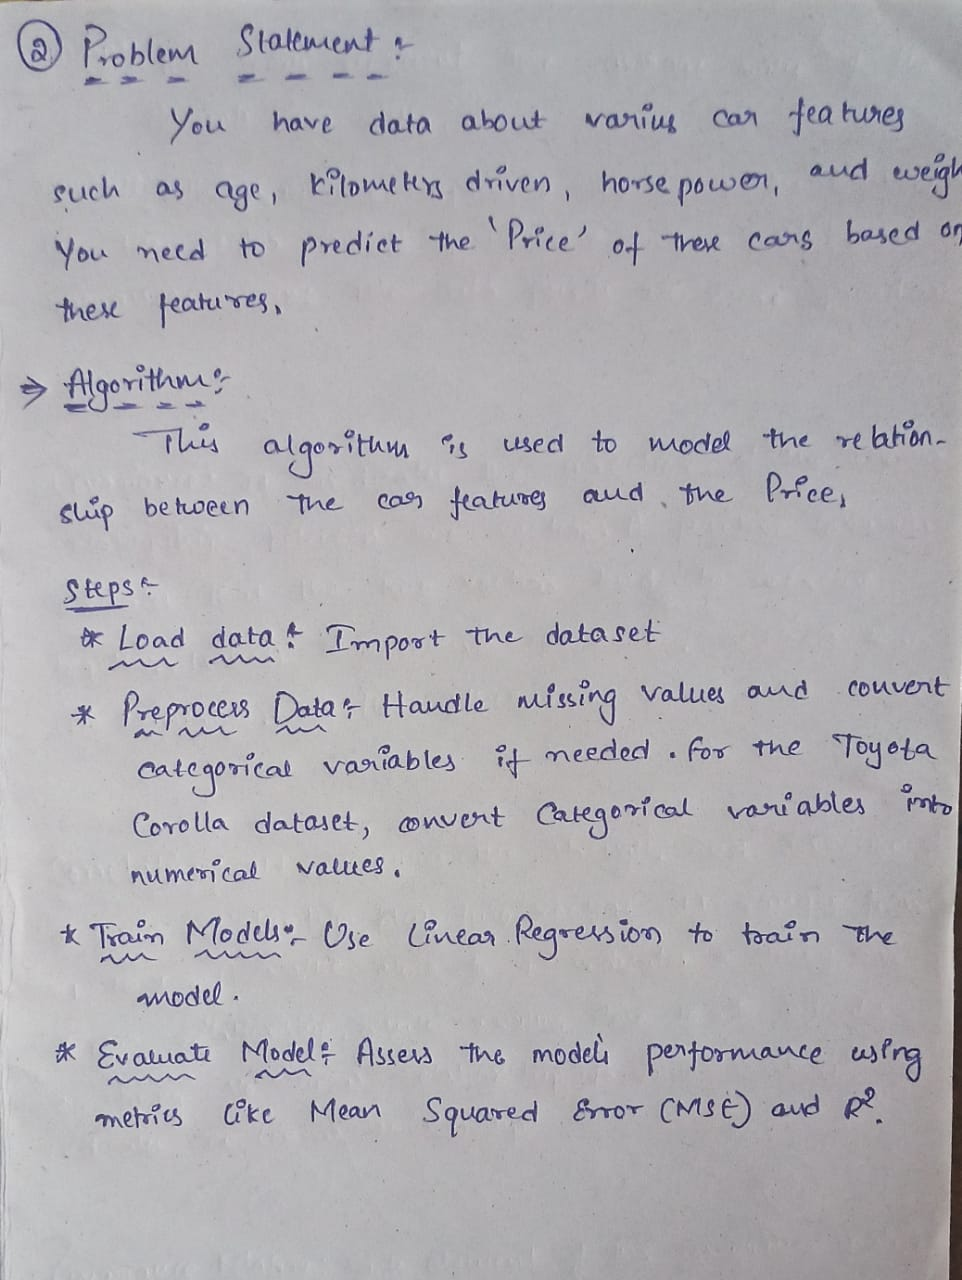 ② Problem Statement :-
You have data about varius car features
such as age, kilometers driven, horse power, and weigh
You need to predict the 'Price' of these cars based on
these features,
⇒ Algorithm :-
This algorithm is used to model the relation-
ship between the car features and the Price,
Steps :-
* Load data :- Import the dataset
* Preprocess Data :- Handle missing values and convert
categorical variables if needed. for the Toyota
Corolla dataset, convert Categorical variables into
numerical values.
* Train Models :- Use Linear Regression to train the
model.
* Evaluate Model :- Assess the model's performance using
metrics like Mean Squared Error (MSE) and R².